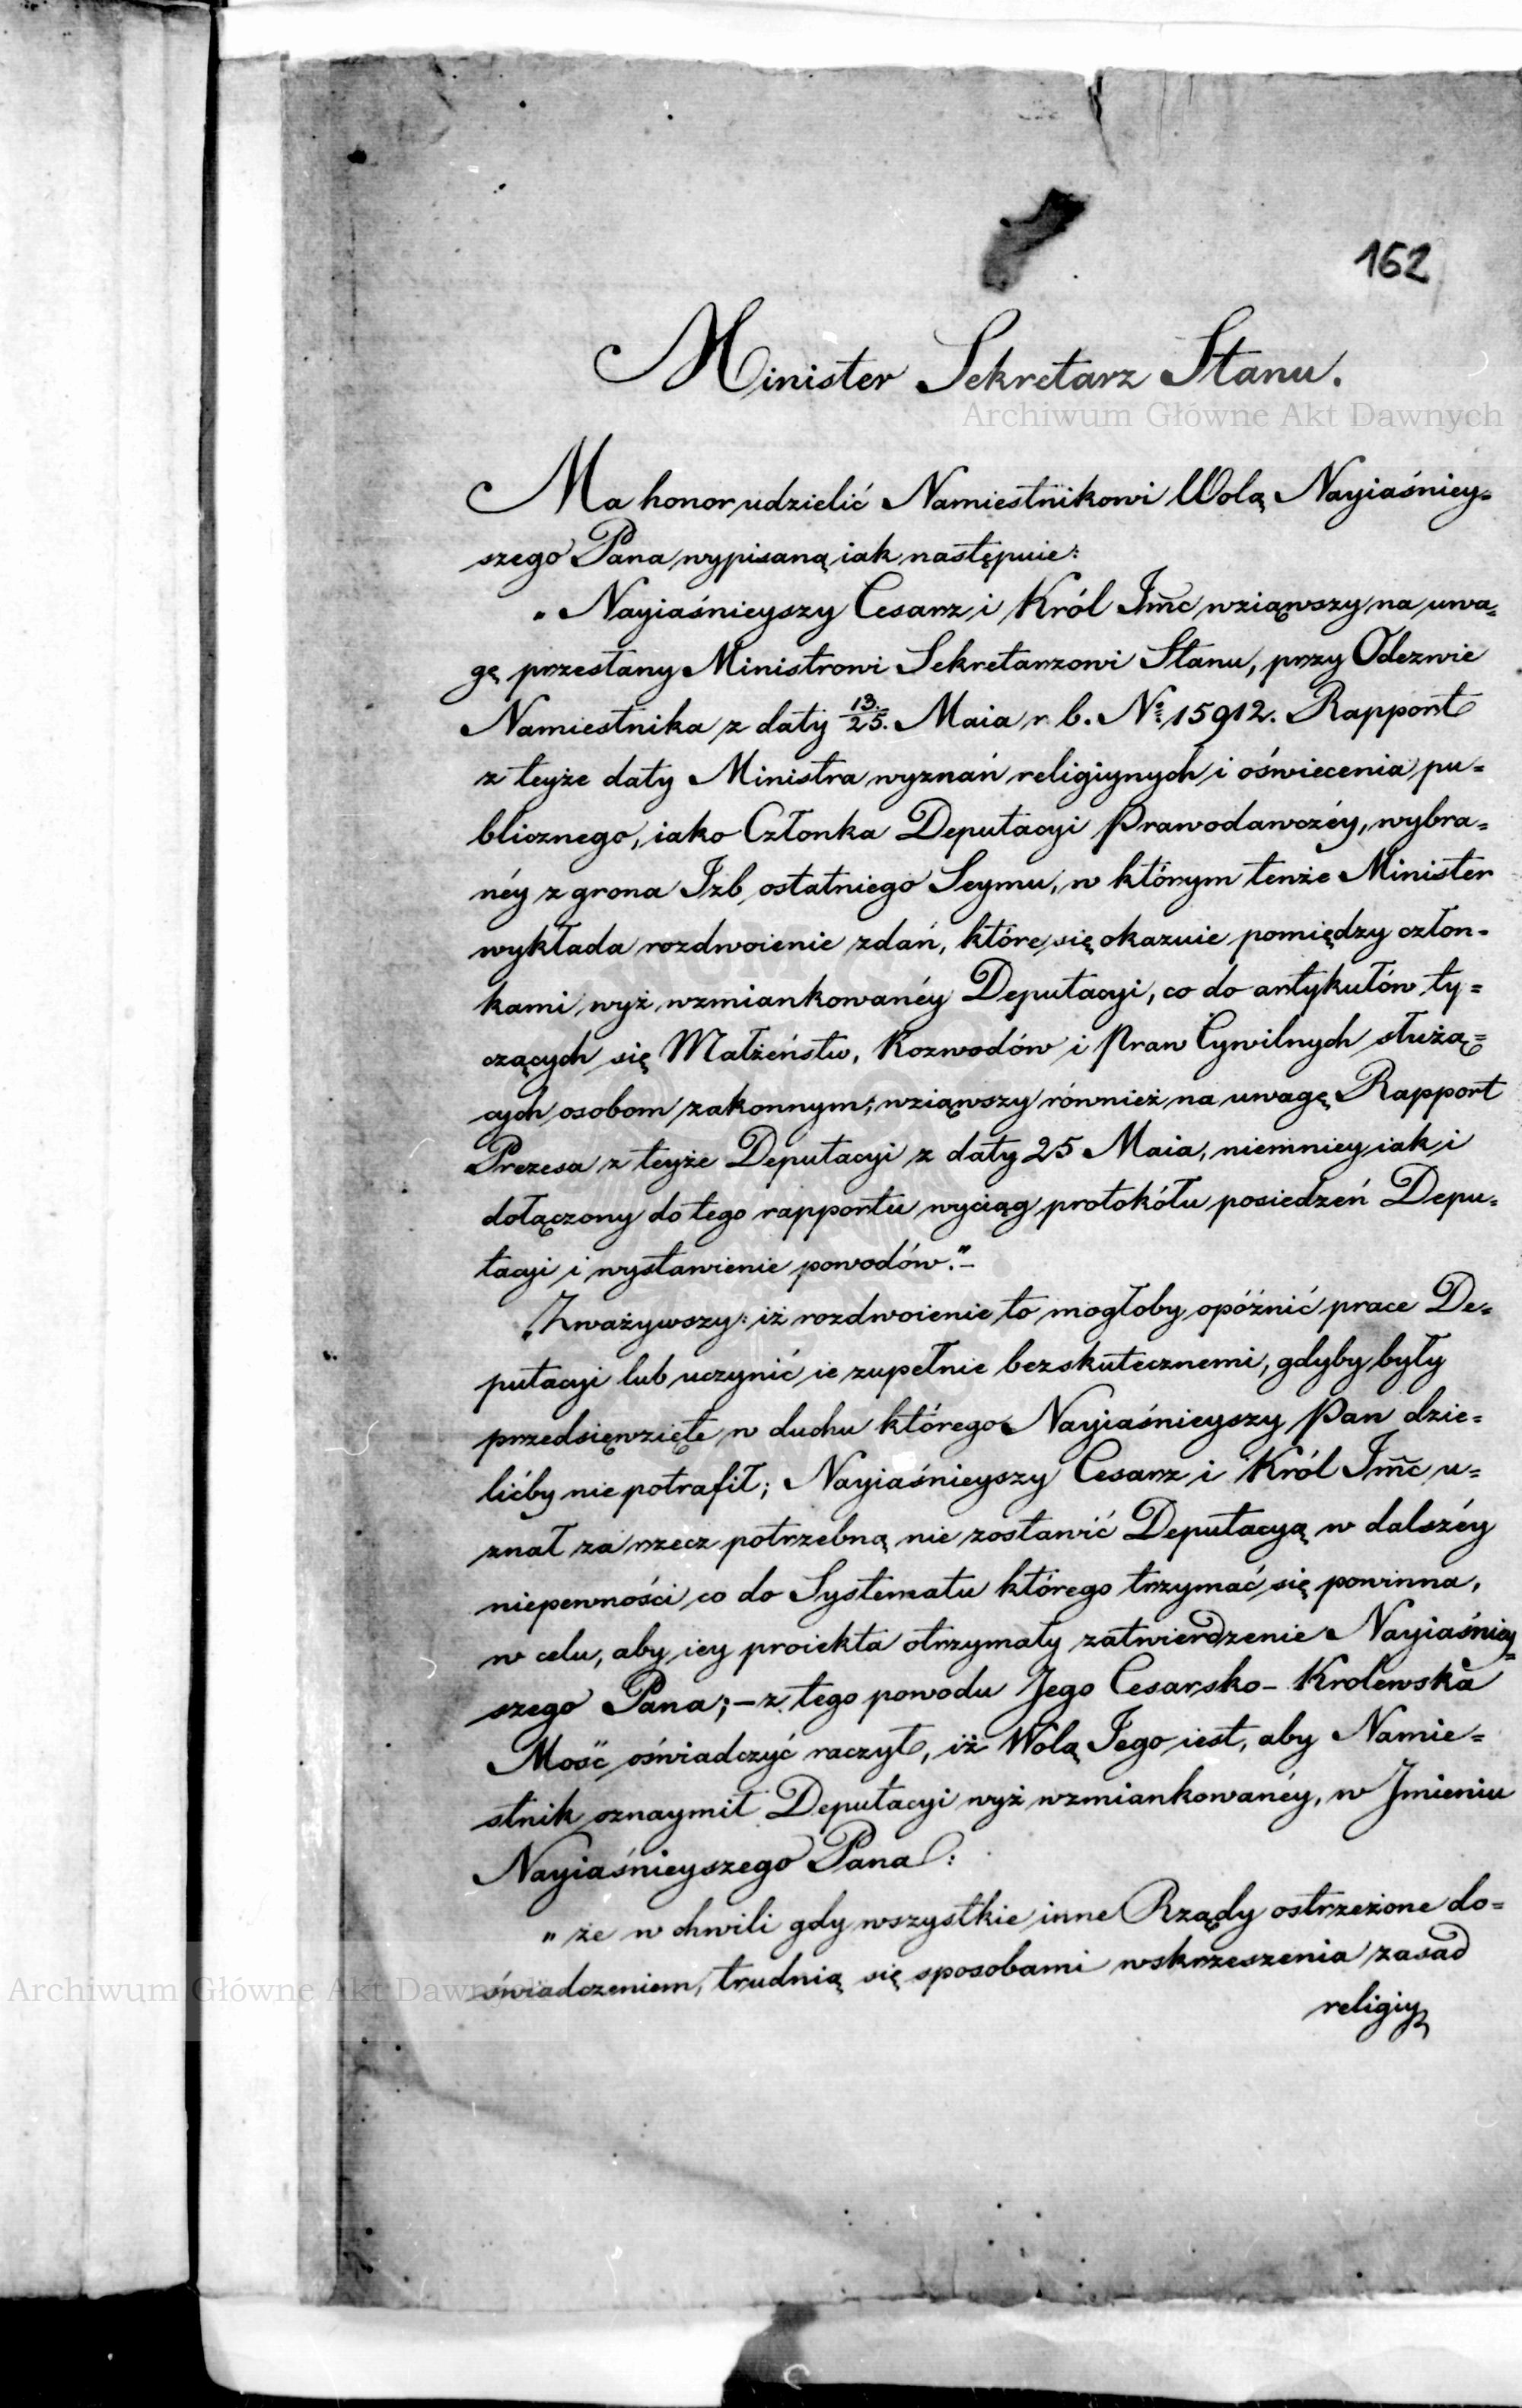 162
Minister Sekretarz Stanu.
Archiwum Główne Akt Dawnych
Ma honor udzielić Namiestnikowi Wolą Nayiaśniey=
szego Pana wypisaną iak następuie:
„ Nayiaśnieyszy Cesarz i Król Jm̃c wziąwszy na uwa=
gę przesłany Ministrowi Sekretarzowi Stanu, przy Odezwie
Namiestnika z daty 13/25. Maia r. b. No 15912. Rapport
z teyże daty Ministra wyznań religiynych i oświecenia pu=
blicznego, iako Członka Deputacyi Prawodawczéy, wybra=
néy z grona Izb ostatniego Seymu, w którym tenże Minister
wykłada rozdwoienie zdań, które się okazuie pomiędzy człon=
kami wyż wzmiankowanéy Deputacyi, co do artykułów ty=
czących się Małżeństw, Rozwodów i Praw Cywilnych służą=
cych osobom zakonnym; wziąwszy również na uwagę Rapport
Prezesa z teyże Deputacyi z daty 25 Maia, niemniey iak i
dołączony do tego rapportu wyciąg protokółu posiedzeń Depu=
tacyi i wystawienie powodów."–
„Zważywszy: iż rozdwoienie to mogłoby opóźnić prace De=
putacyi lub uczynić ie zupełnie bezskutecznemi, gdyby były
przedsięwzięte w duchu którego Nayiaśnieyszy Pan dzie=
lićby nie potrafił; Nayiaśnieyszy Cesarz i Król Jm̃c u=
znał za rzecz potrzebną nie zostawić Deputacyą w dalszéy
niepewności co do Systematu którego trzymać się powinna,
w celu, aby iey proiekta otrzymały zatwierdzenie Nayiaśniey=
szego Pana; – z tego powodu Jego Cesarsko-Krolewska
Mość oświadczyć raczył, iż Wolą Jego iest, aby Namie=
stnik oznaymił Deputacyi wyż wzmiankowanéy, w Jmieniu
Nayiaśnieyszego Pana:
„ że w chwili gdy wszystkie inne Rządy ostrzeżone do=
świadczeniem, trudnią się sposobami wskrzeszenia zasad
Archiwum Główne Akt Dawnych
religiy